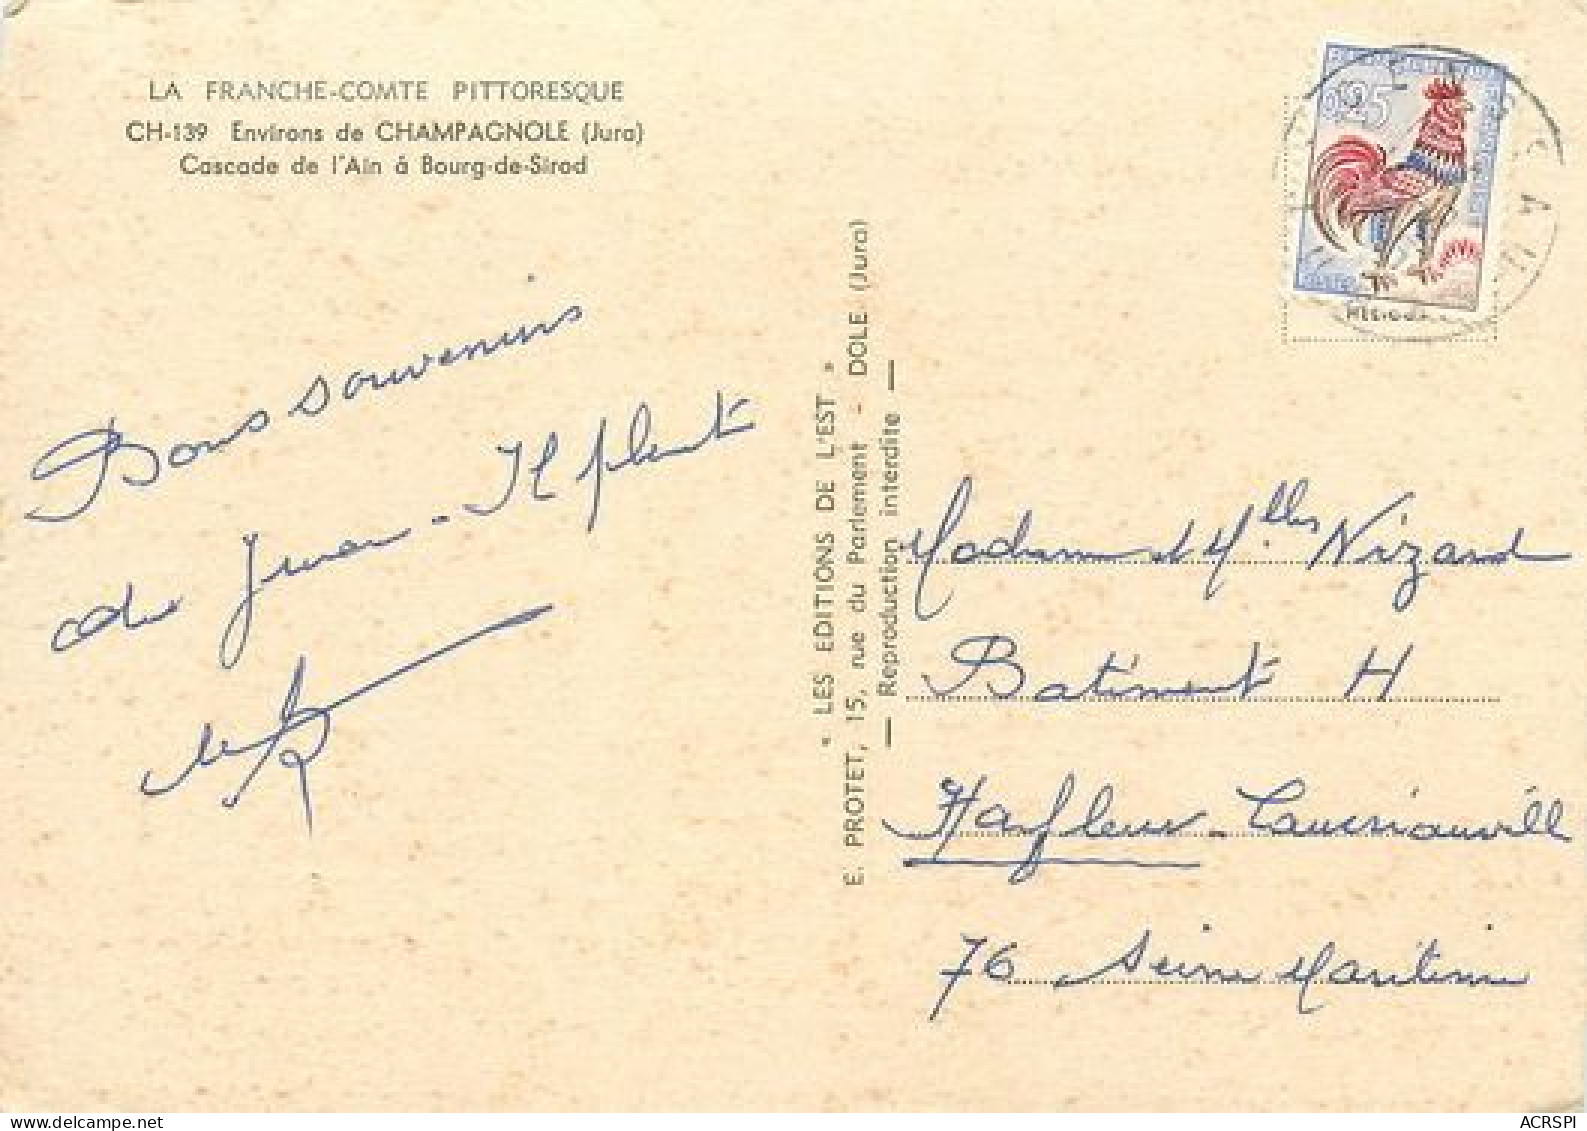 LA FRANCHE-COMTE PITTORESQUE
CH-139 Environs de CHAMPAGNOLE (Jura)
Cascade de l'Ain à Bourg-de-Sirod
Bons souvenirs
du Jura - Il pleut
" LES EDITIONS DE L'EST "
E. PROTET, 15, rue du Parlement - DOLE (Jura)
— Reproduction interdite —
0,25
Madame et Melles Nizard
Batiment H
Harfleur-
76 Seine Maritime
ACRSPI